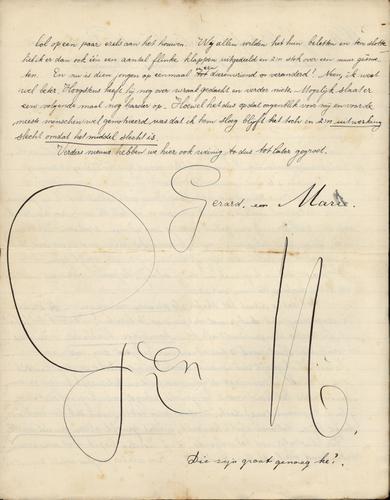 lol op een paar ezels aan het houwen. Wij allen wilden het hun beletten en ten slotte
heb ik er dan ook een een aantal flinke klappen uitgedeeld en z'n stok over een muur gesme-
ten. En nu is dien jongen op eenmaal een dierenvriend en veranderd! Neen, ik weet
wel beter. Hoogstens heeft hij nog over wraak gedacht en verder niets. Mogelijk slaat er
een volgende maal nog harder op. Hoewel het dus opdat oogenblik voor mij en voor de
meeste menschen wel gemotiveerd was dat ik hem sloeg blijft het toch en z'n uitwerking
slecht omdat het middel slecht is.
Verders nieuws hebben we hier ook weinig te dus tot later gegroet.
Gerard. en Marie.
G en M.
Die zijn groot genoeg hè?.